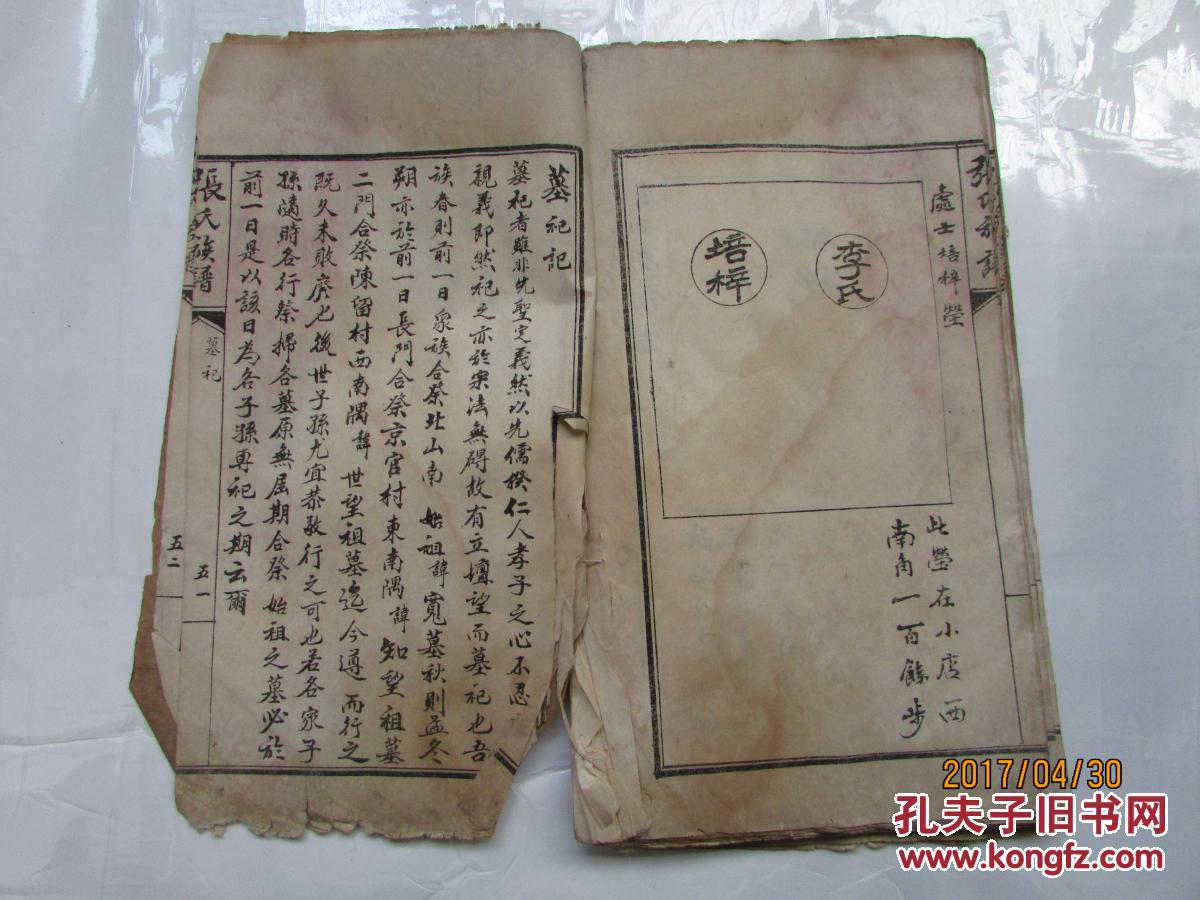 處士培梓塋
李氏
培梓
此塋在小店西
南角一百餘步
墓祀記
墓祀者雖非先聖定義然以先儒揆仁人孝子之心不忍
親義即然祀之亦於宗法無碍故有立壇望而墓祀也吾
族春則前一日衆族合祭北山南 始祖諱寬墓秋則孟冬
朔亦於前一日長門合祭京官村東南隅諱知望祖墓
二門合祭陳留村西南隅諱世望祖墓迄今遵而行之
既久未敢廢也後世子孫尤宜恭敬行之可也若各家子
孫隨時各行祭掃各墓原無屆期合祭 始祖之墓必於
前一日是以該日為各子孫專祀之期云爾
張氏族譜
墓祀
五一
五二
2017/04/30
孔夫子旧书网
www.kongfz.com